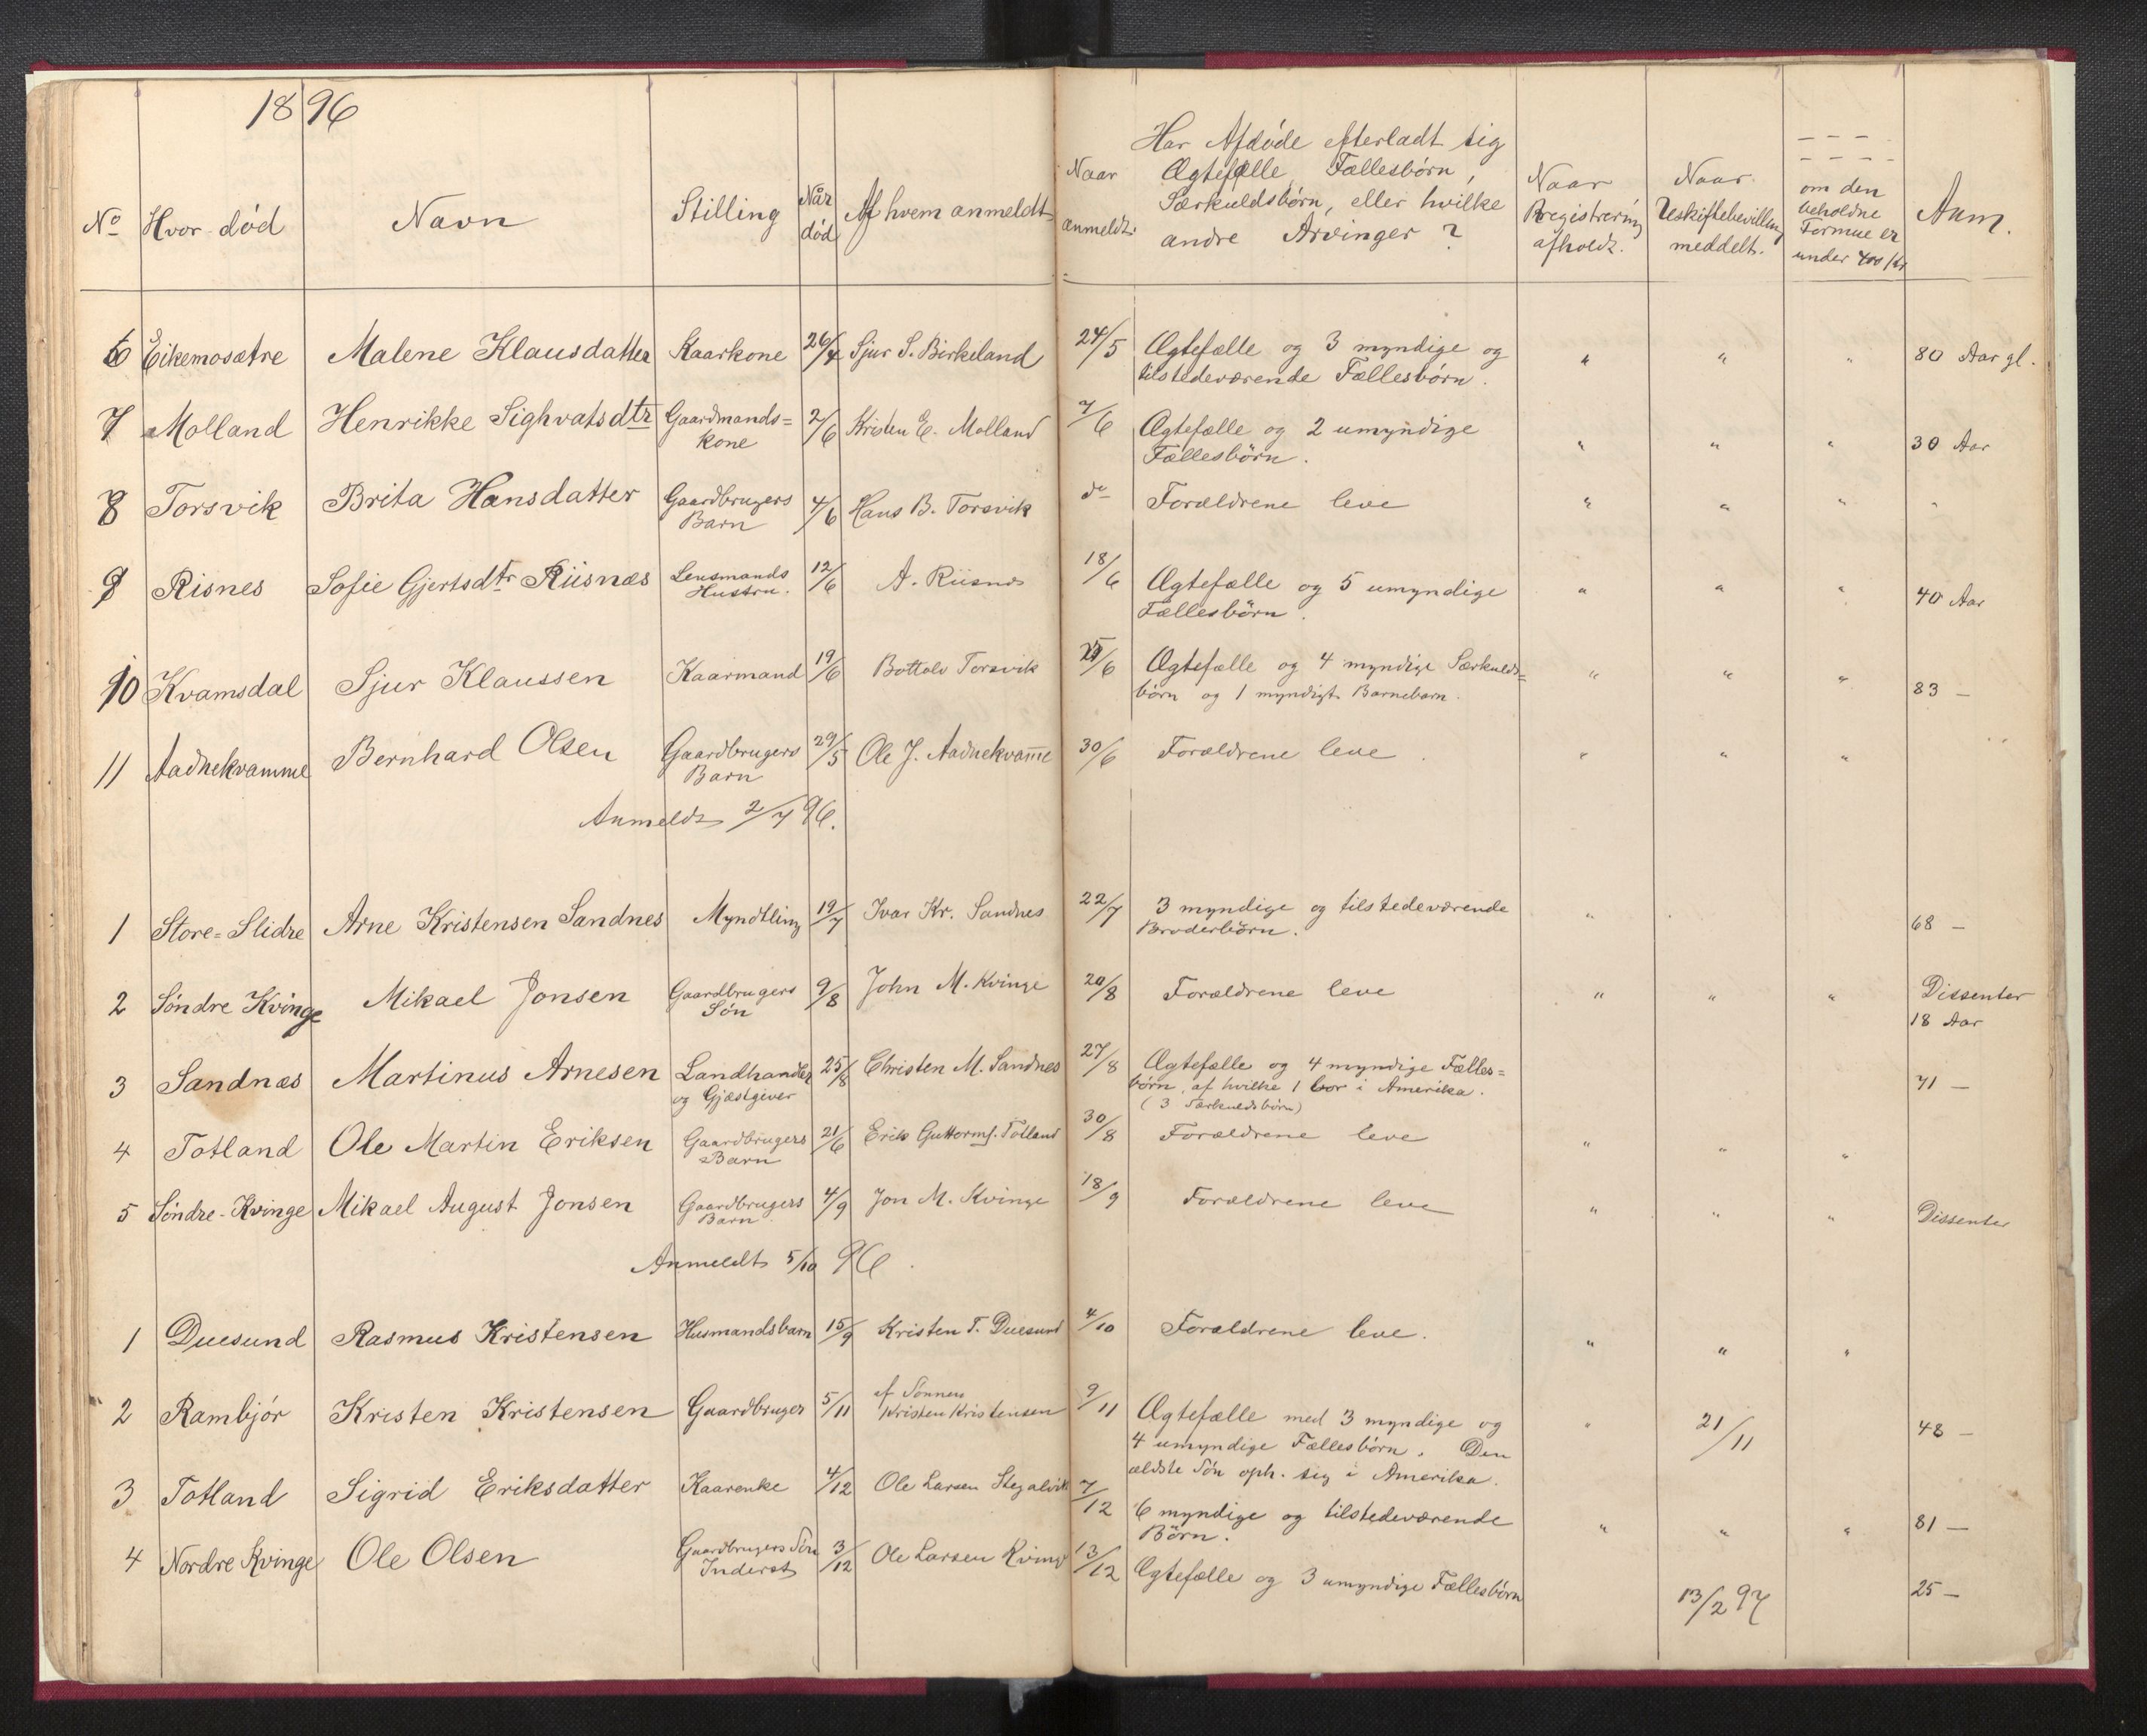 1896
No Hvor død Navn Stilling Når død Af hvem anmeldt Naar anmeldt. Har Afdøde efterladt sig Ægtefælle, Fællesbørn, Særkuldsbørn, eller hvilke andre Arvinger? Naar Registrering afholdt. Naar Uskiftebevilling meddelt. om den beholdne Formue er under 400 Kr Anm.
6 Eikemosætre Malene Klausdatter Kaarkone 26/4 Sjur S. Birkeland 24/5 Ægtefælle og 3 myndige og " " " 80 Aar gl.
tilstedeværende Fællesbørn.
7 Molland Henrikke Sighvatsdtr Gaardmands= 2/6 Kristen E. Molland 7/6 Ægtefælle og 2 umyndige " " " 30 Aar
kone Fællesbörn.
8 Torsvik Brita Hansdatter Gaardbrugers 4/6 Hans B. Torsvik do Forældrene leve " " " "
Barn
9 Risnes Sofie Gjertsdtr Riisnæs Lensmands 12/6 A. Riisnes 18/6 Ægtefælle og 5 umyndige " " " 40 Aar
Hustru. Fællesbörn.
10 Kvamsdal Sjur Klaussen Kaarmand 19/6 Bottolv Torsvik /6 Ægtefælle og 4 myndige Særkulds= " " " 83 —
børn og 1 myndigt Barnebarn.
11 Aadnekvamme Bernhard Olsen Gaardbrugers 29/5 Ole J. Aadnekvam̅e 30/6 Forældrene leve " " "
Barn
Anmeldt 2/7 96.
1 Store=Slidre Arne Kristensen Sandnes Myndtling 19/7 Ivar Kr. Sandnes 22/7 3 myndige og tilstedeværende " 68 —
Broderbörn.
2 Søndre Kvinge Mikael Jonsen Gaardbrugers 9/8 John M. Kvinge 20/8 Forældrene leve " " " Dissenter
Søn 18 Aar
3 Sandnæs Martinus Arnesen Landhandler 25/8 Christen M. Sandnes 27/8 Ægtefælle og 4 myndige Fælles= 71 —
og Gjæstgiver börn, af hvilke 1 bor i Amerika.
(3 Særkuldsbörn)
4 Totland Ole Martin Eriksen Gaardbrugers 21/6 Erik Guttorms. Totland 30/8 Forældrene leve " " "
Barn
5 Søndre-Kvinge Mikael August Jonsen Gaardbrugers 4/9 Jon M. Kvinge 18/9 Forældrene leve " " " Dissenter
Barn
Anmeldt 5/10 96.
1 Duesund Rasmus Kristensen Husmandsbarn 15/9 Kristen T. Duesund 4/10 Forældrene leve. " " "
2 Rambjør Kristen Kristensen Gaardbruger 5/11 af Sønnen 9/11 Ægtefælle med 3 myndige og " 21/11 48 —
Kristen Kristensen 4 umyndige Fællesbörn. Den
ældste Søn oph. sig i Amerika.
3 Totland Sigrid Eriksdatter Kaarenke 4/12 Ole Larsen Stegalvik 7/12 6 myndige og tilstedeværende " " " 81 —
Börn.
4 Nordre Kvinge Ole Olsen Gaardbrugers Søn 3/12 Ole Larsen Kvinge 13/12 Ægtefælle og 3 umyndige Fællesbörn 13/2 97 25 —
Inderst